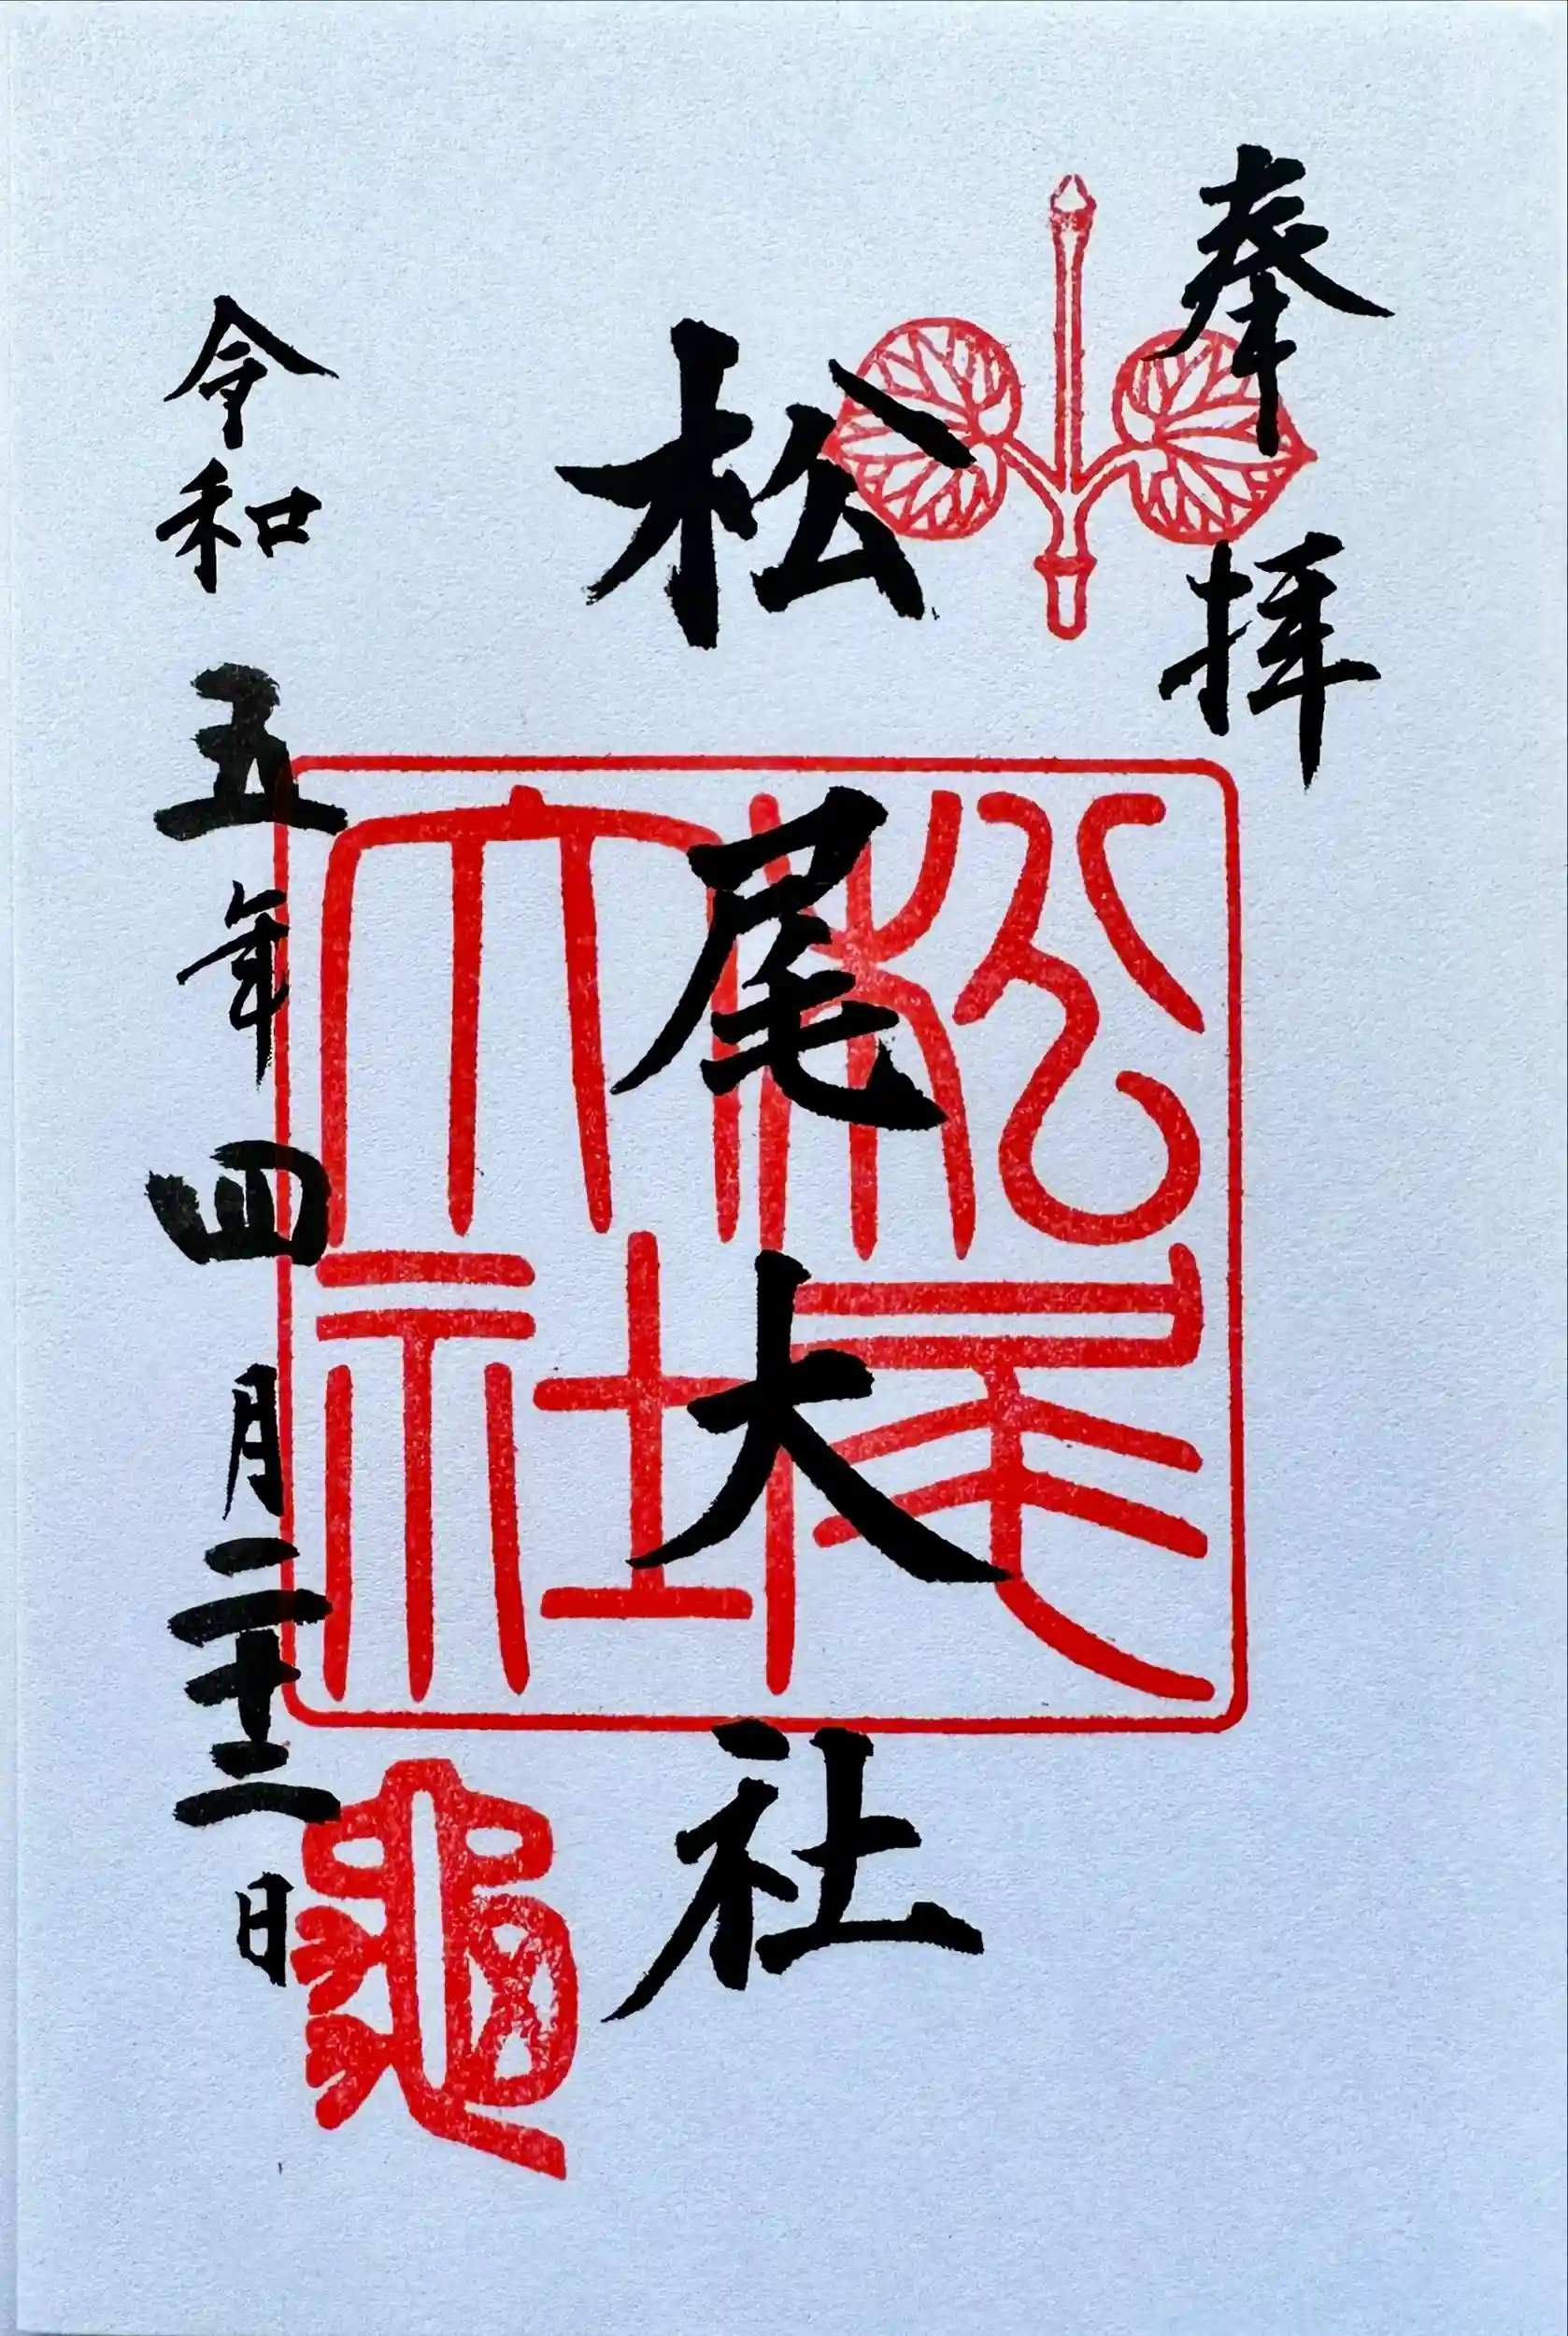 奉拝
松尾大社
令和五年四月二十二日
松尾
大社
龜